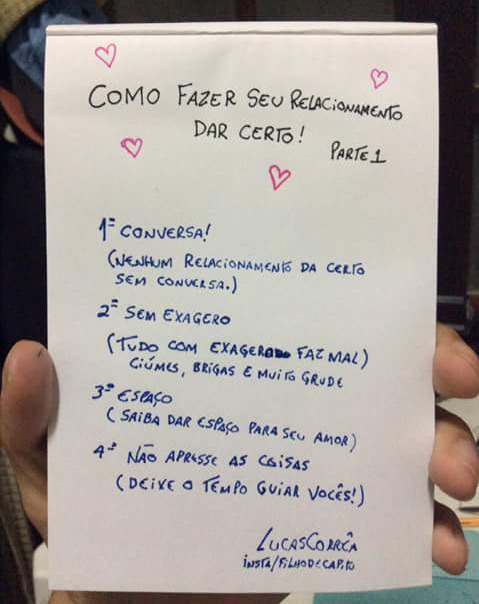 COMO FAZER SEU RELACIONAMENTO
DAR CERTO!
PARTE 1
1º CONVERSA!
(NENHUM RELACIONAMENTO DA CERTO
SEM CONVERSA.)
2º SEM EXAGERO
(TUDO COM EXAGERO FAZ MAL)
CIÚMES, BRIGAS E MUITO GRUDE
3º ESPAÇO
(SAIBA DAR ESPAÇO PARA SEU AMOR)
4º NÃO APRESSE AS COISAS
(DEIXE O TEMPO GUIAR VOCÊS!)
LUCAS CORRÊA
INSTA/FILHODECAPITO